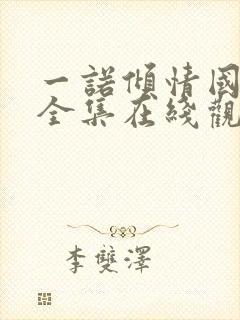 一諾傾情國
全集在綫觀
李雙澤